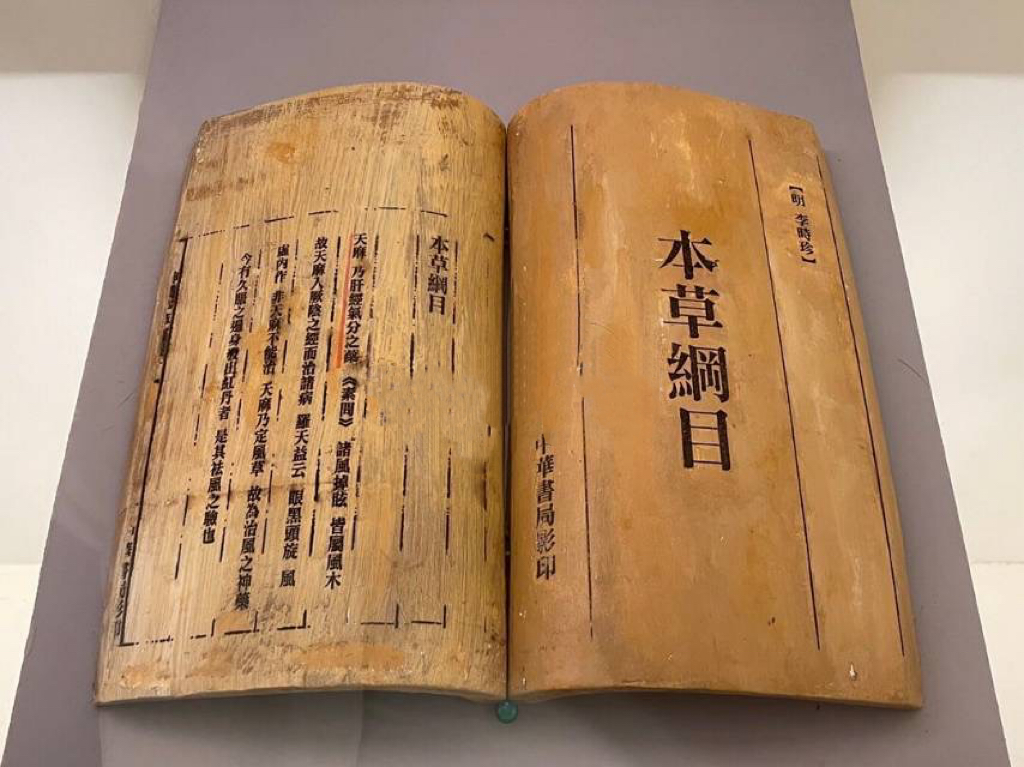 【明 李時珍】
本草綱目
中華書局影印
本草綱目
天麻 乃肝經氣分之藥 《素問》 諸風掉眩 皆屬風木
故天麻入厥陰之經而治諸病 羅天益云 眼黑頭旋 風
虛內作 非天麻不能治 天麻乃定風草 故為治風之神藥
今有久服之遍身發出紅丹者 是其祛風之驗也